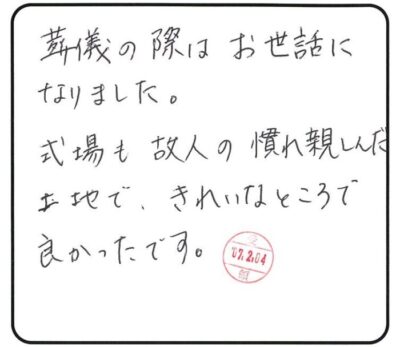 葬儀の際は お世話に
なりました。
式場も 故人の 慣れ親しんだ
土地で、きれいなところで
良かったです。
受
07.2.04
領